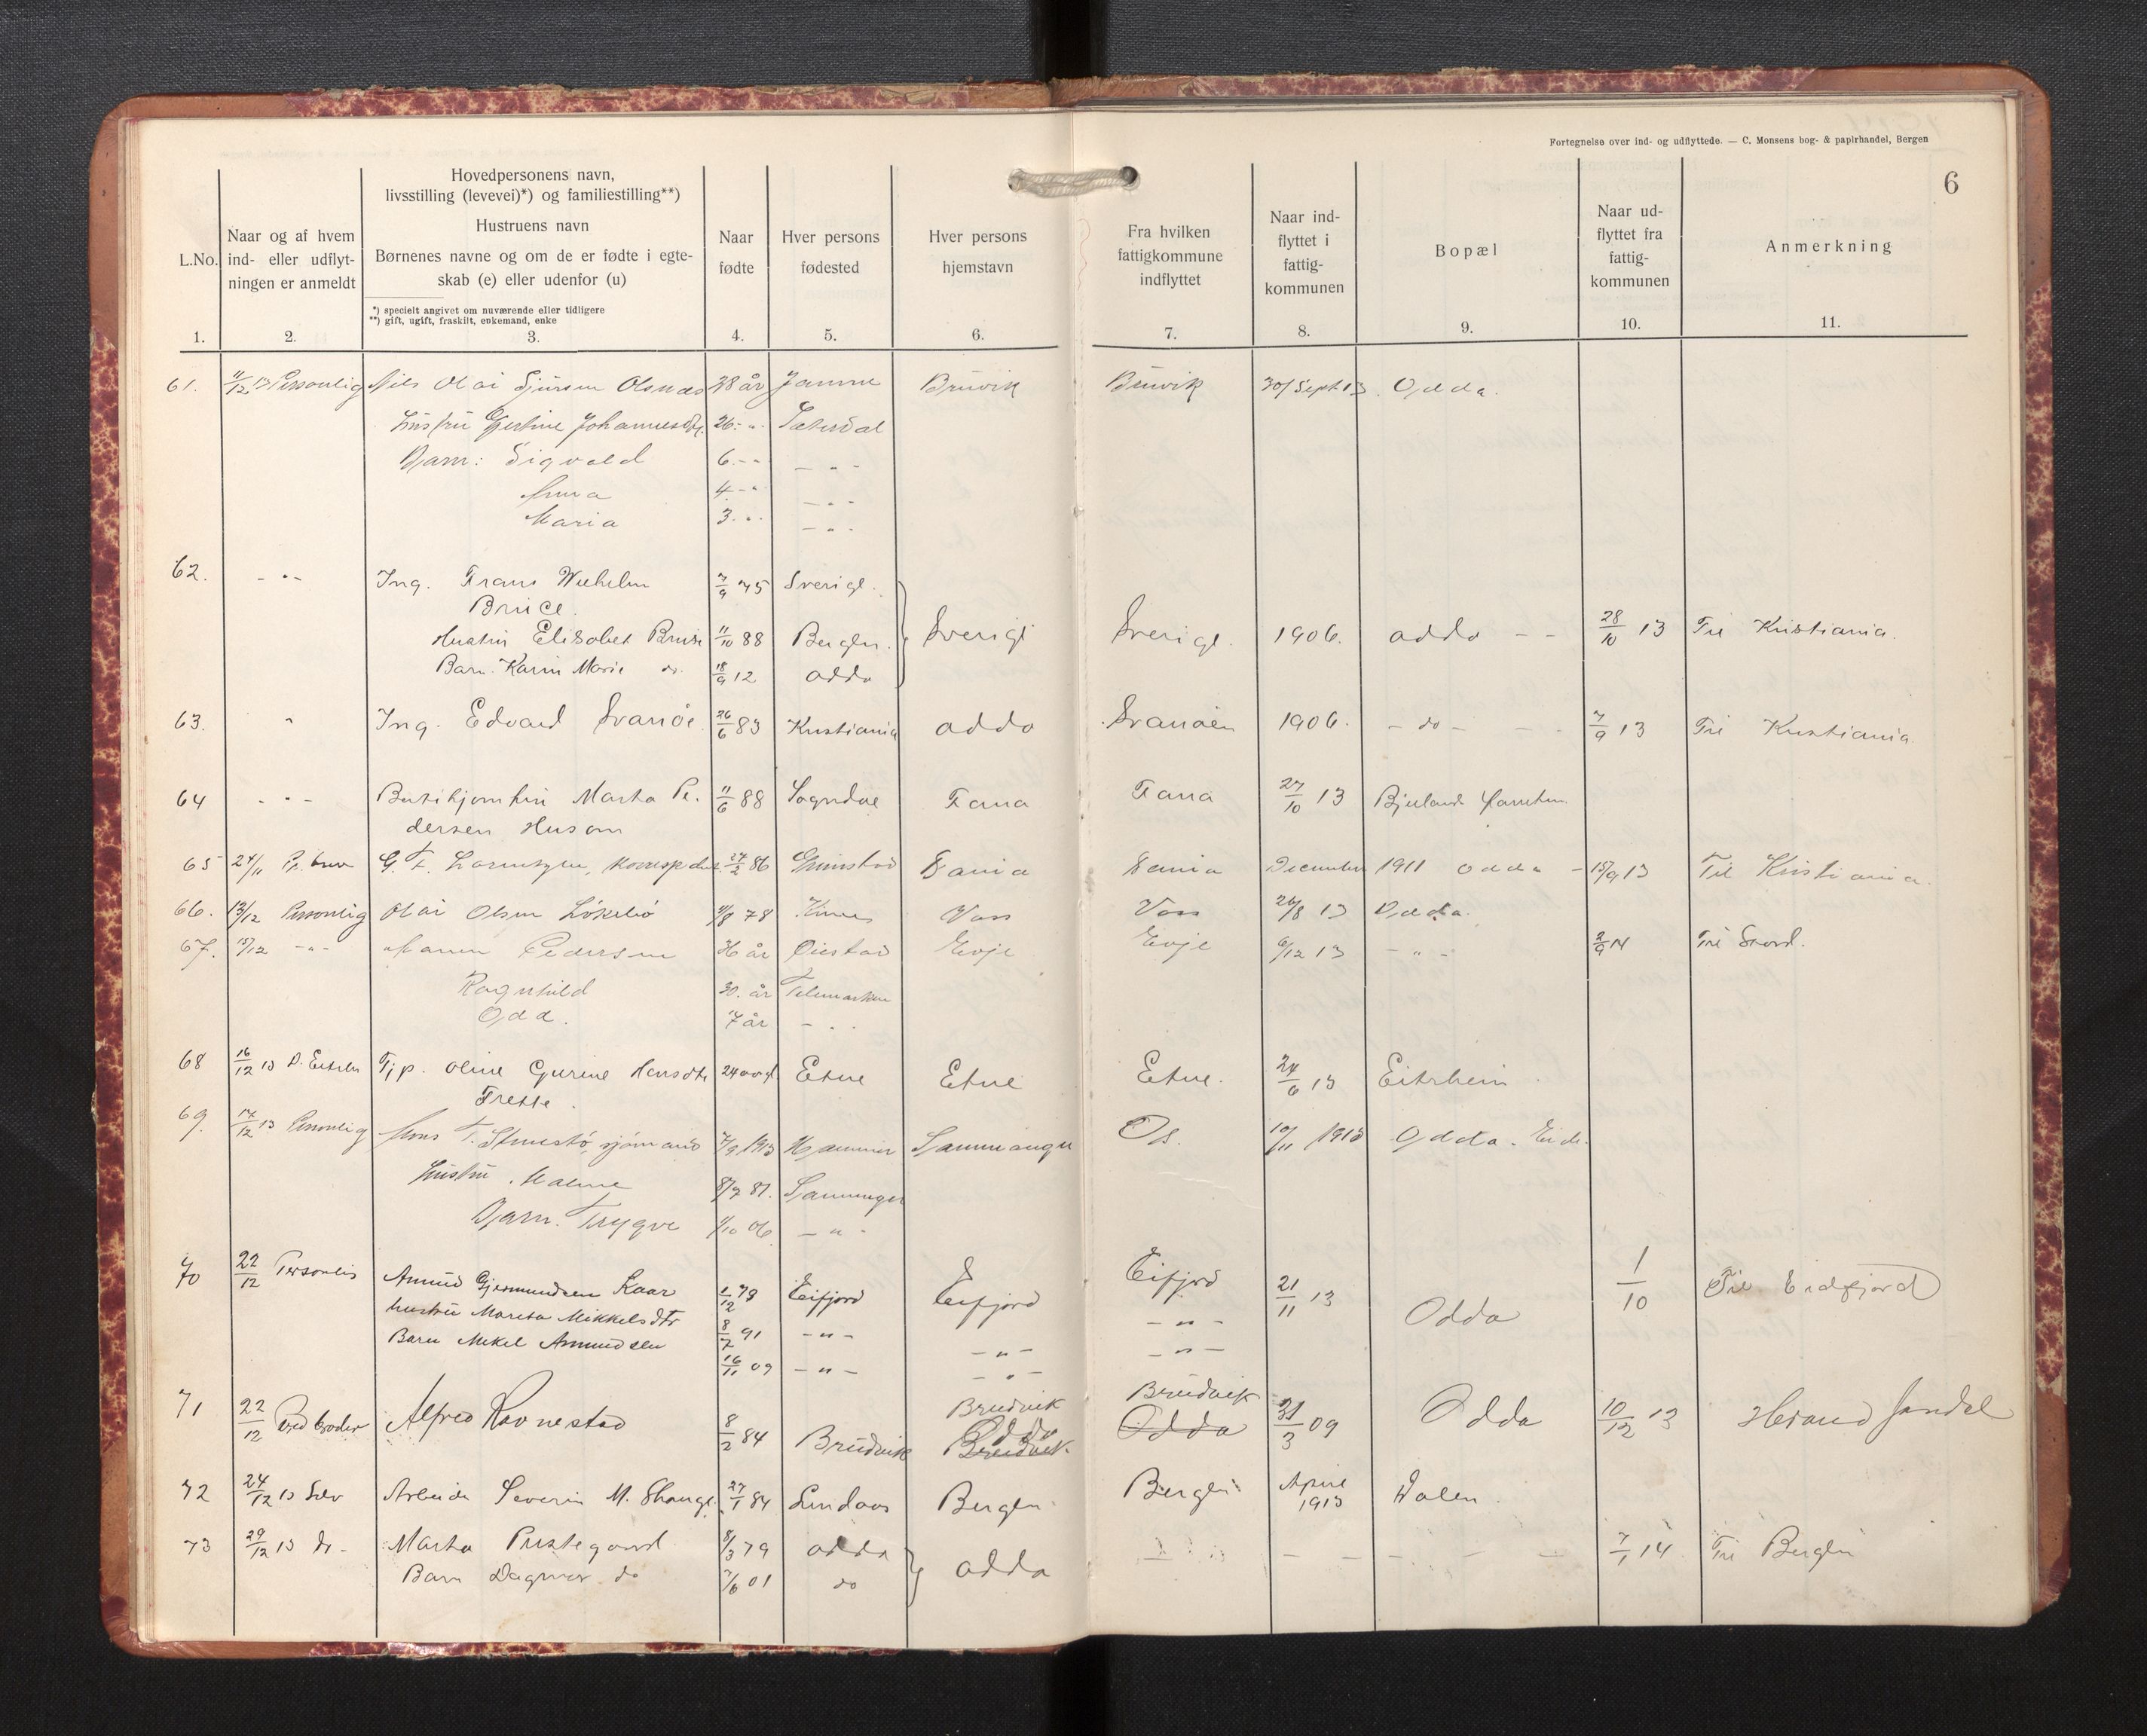 Fortegnelse over ind- og udflyttede. — C. Monsens bog- & papirhandel, Bergen
6
L.No.
1.
Naar og af hvem
ind- eller udflyt-
ningen er anmeldt
2.
Hovedpersonens navn,
livsstilling (levevei)*) og familiestilling**)
Hustruens navn
Børnenes navne og om de er fødte i egte-
skab (e) eller udenfor (u)
*) specielt angivet om nuværende eller tidligere
**) gift, ugift, fraskilt, enkemand, enke
3.
Naar
fødte
4.
Hver persons
fødested
5.
Hver persons
hjemstavn
6.
Fra hvilken
fattigkommune
indflyttet
7.
Naar ind-
flyttet i
fattig-
kommunen
8.
Bopæl
9.
Naar ud-
flyttet fra
fattig-
kommunen
10.
Anmerkning
11.
61. 11/12 13 Personlig Nils Olai 38 år Bruvik Bruvik 30/Sept 13. Odda.
Hustru Gjertine Johannesdtr. 26 - " - Sætersdal
Barn: Sigvald 6 - " - " -
Anna 4 - " - " -
Maria 3 - " - " -
62. - " - Ing. Frans Wilhelm 7/9 75 Sverige.
Bruce.
Hustru Elisabet Bruse 11/10 88 Bergen. Sverige Sverige. 1906. Odda - - 28/10 13 Til Kristiania.
Barn. Karin Marie do. 18/9 12 Odda
63. " Ing. Edvard Svanøe. 26/6 83 Kristiania Odda Svanøen 1906. - do - - - 7/9 13 Til Kristiania.
64 - " - Marta Pe- 11/6 88 Sogndal Fana Fana 27/10 13
dersen Husom
65 24/11 Pr. brev G. F. Lorentzen, 27/2 86 Grimstad December 1911 Odda - 15/9 13 Til Kristiania.
66. 13/12 Personlig Olai Olsen 78 Voss Voss 26/8 13 Odda.
67. 15/12 - " - Pedersen 36 år Øiestad Evje Evje 6/12 13 - " - 2/9 14 Til Stord.
Ragnhild 30. år Telemarken
Odd. 7 år - " -
68 16/12 13 Tjp. Oline Gurine Hansdtr 24 aar Etne Etne Etne. 24/6 13 Eitrheim
Frette.
69. 17/12 13 Personlig sjømand 7/9 1913 Hammer Samnanger Os. 10/11 1913 Odda.
Hustru. Malene 8/7 81. Samnanger
Barn. Trygve 1/10 06 - " -
70 22/12 Personlig Amund Gjermundsen Laar 1/12 79 Eifjord Eifjord Eifjord 21/11 13 Odda 1/10 Til Eidfjord
hustru Mareta Mikkelsdtr 8/7 91 - " - - " - - " -
Barn Mekel Amundsen 16/11 09 - " - - " - - " -
71 22/12 Ved broder Alfred Ravnestad 8/2 84 Brudvik Brudvik Odda Brudvik Brudvik Odda 31/3 09 Odda 10/12 13 Herand Jondal
72 24/12 13 Selv Arbeider Severin M. 27/1 84 Lindaas Bergen. Bergen April 1913 Dalen.
73 29/12 13 do - Marta Prestegaard 8/3 79 Odda Odda - " - - - - - - 7/1 14 Til Bergen
Barn Dagmar do 7/6 01 do